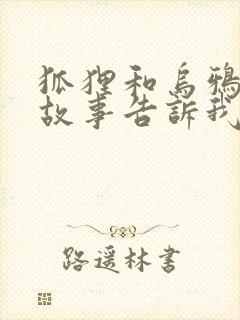 狐狸和烏鴉
故事告訴我
路遥林書